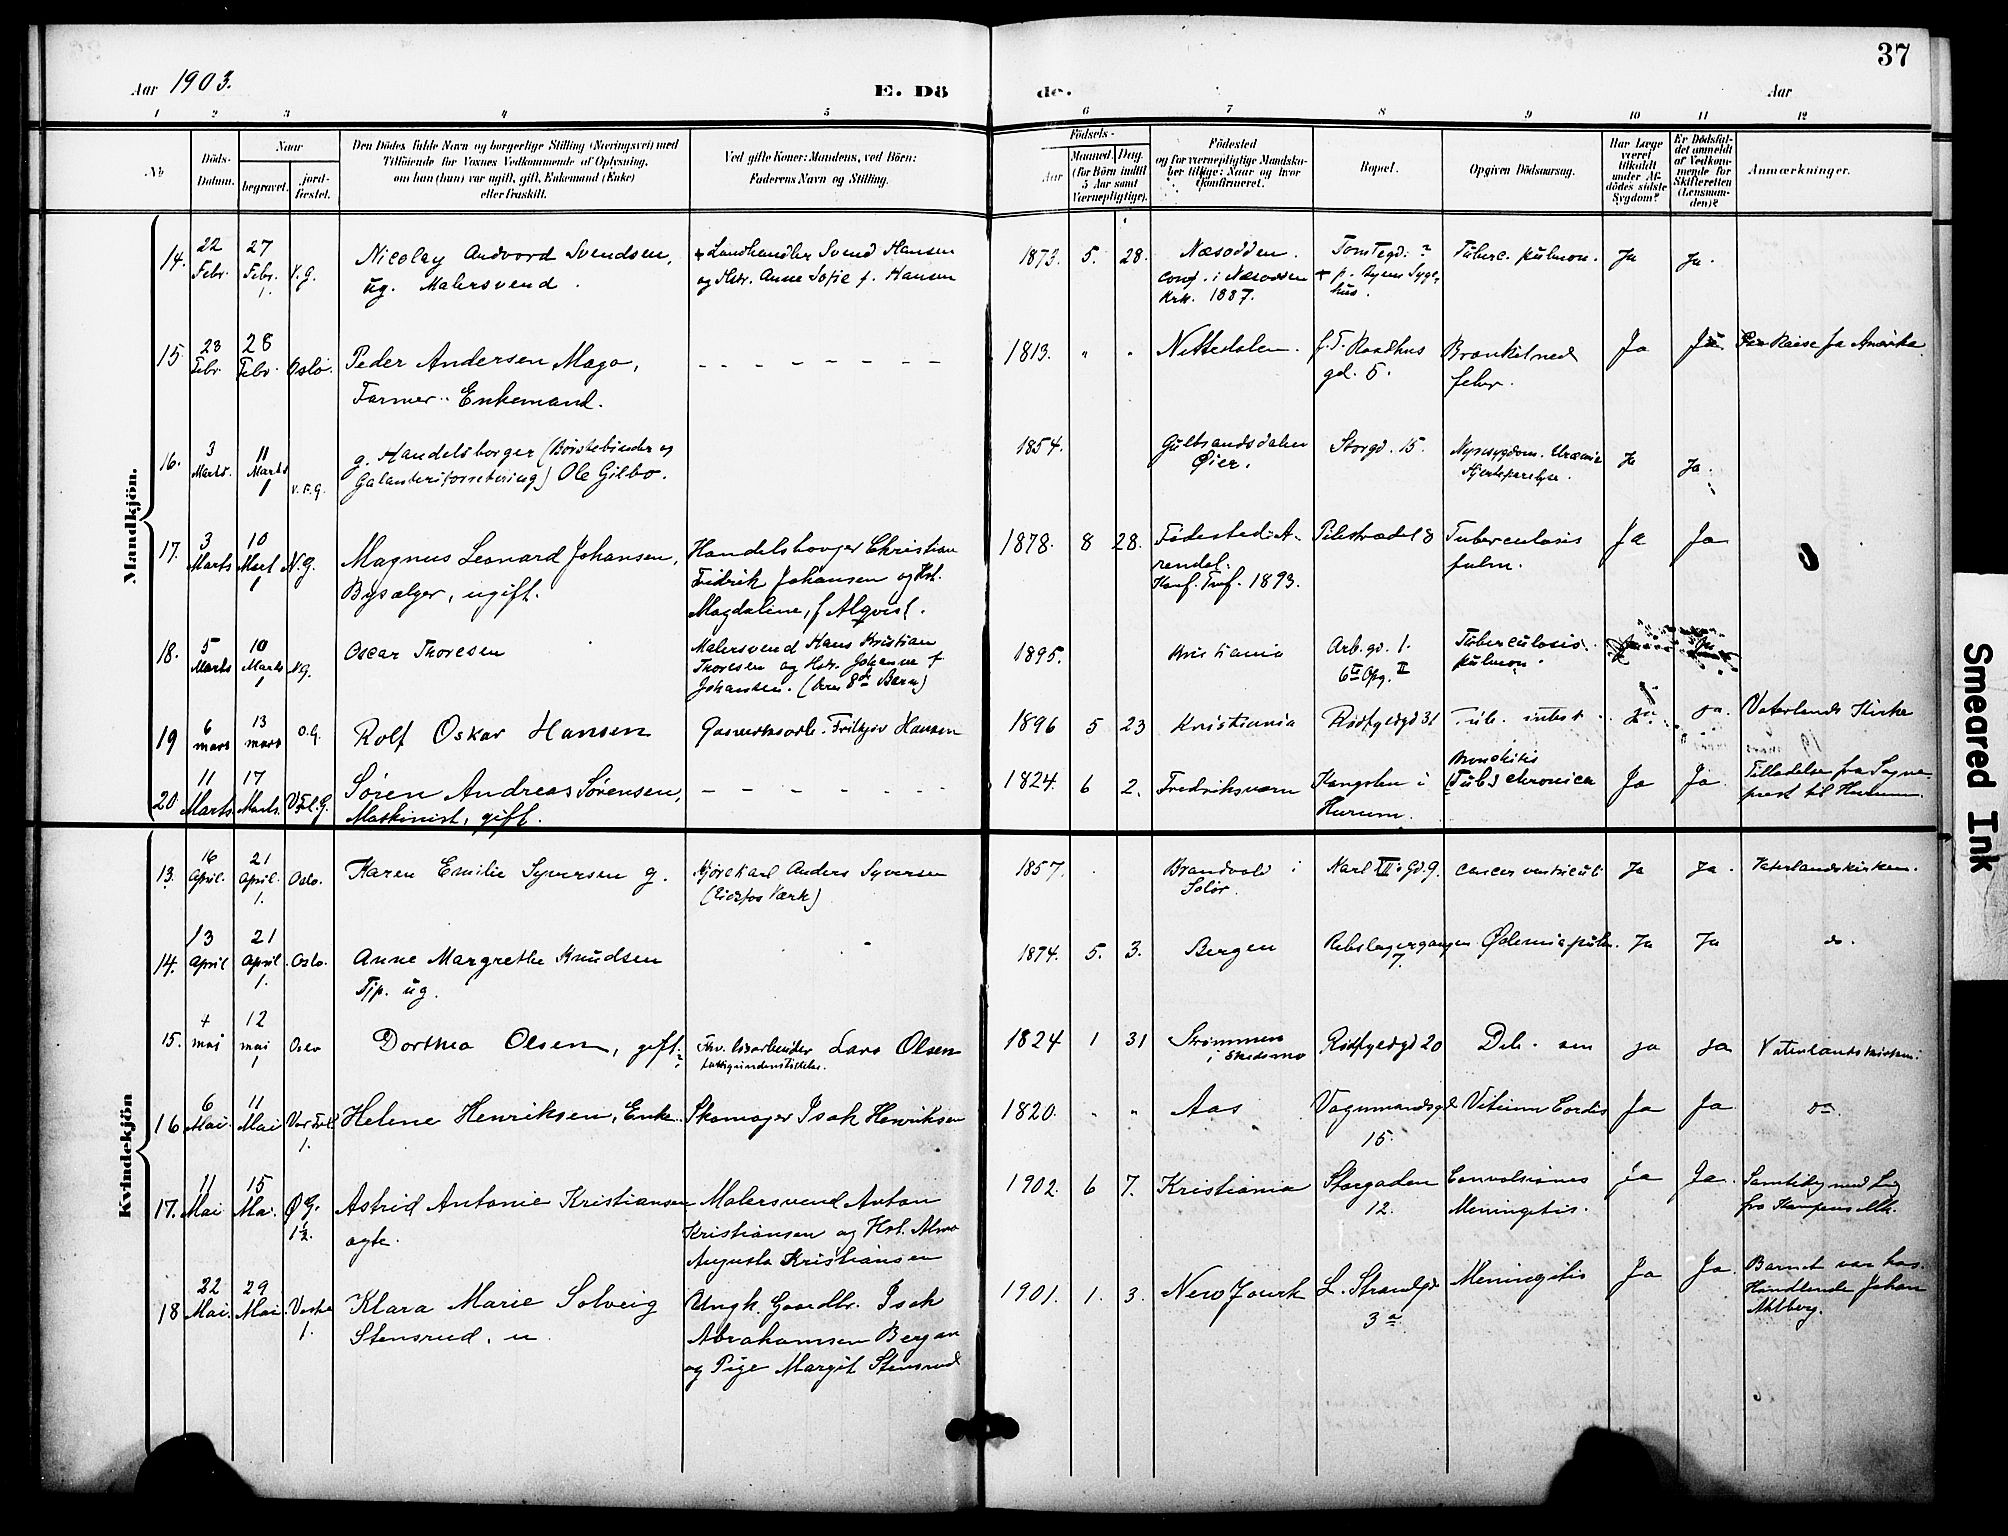 37
Aar 1903.
E. Dö
de.
Aar
1 2 3 4 5 6 7 8 9 10 11 12
No
Döds-
Datum.
Naar
begravet.
jord-
fæstet.
Den Dödes fulde Navn og borgerlige Stilling (Næringsvei) med
Tilföiende for Voxnes Vedkommende af Oplysning,
om han (hun) var ugift, gift, Enkemand (Enke)
eller fraskilt.
Ved gifte Koner: Mandens, ved Börn:
Faderens Navn og Stilling.
Födsels-
Aar
Maaned. Dag.
(for Börn indtil
5 Aar samt
Værnepligtige).
Födested
og for værnepligtige Mandska-
ber tillige: Naar og hvor
Confirmeret.
Bopæl.
Opgiven Dödsaarsag.
Har Læge
været
tilkaldt
under Af-
dödes sidste
Sygdom?
Er Dödsfal-
det anmeldt
af Vedkom-
mende for
Skifteretten
(Lensman-
den)?
Anmærkninger.
Mandkjön.
14. 22 Febr. 27 Febr. 1 V.G.
Nicolay Andvord Svendsen,
ug. Malersvend.
+ Landhandler Svend Hansen
og Hstr. Anne Sofie f. Hansen
1873. 5. 28.
Næsodden.
conf. i Næsodden
Krk. 1887.
Tomtegd. ?
hus.
Tuberc. pulmon.
Ja Ja.
15 23 Febr. 28 Febr. Oslo.
Peder Andersen Mago,
Farmer. Enkemand.
- - - - - - -
1813. " "
Nittedalen.
f. T. Raadhus
gd. 5.
Bronkit med
feber.
Ja Ja
Paa Reise fra Amerika
16. 3 Marts. 11 Marts 1 V.F.G.
g. Handelsborger (Börstebinder og
Galanteriforretning) Ole Gilbo.
1854.
Gulbrandsdalen
Øier.
Storgd. 15.
Nyresygdom. Uræmie
Hjerteparalyse.
Ja Ja.
17. 3 Marts 10 Mart 1 N.G.
Magnus Leonard Johansen,
Bysælger, ugift.
Handelsborger Christian
Fridrik Johansen og Hst.
Magdaline, f. Alqvist.
1878. 8 28.
Fødested: A-
rendal.
Konf. Tref. 1893.
Pilestrædet 8
Tuberculosis
pulm.
Ja Ja
18. 5 Marts 10 Marts 1 N.G.
Oscar Thoresen
Malersvend Hans Kristian
Thoresen og Hstr. Johanne f.
Johansen. (deres 8de Barn)
1895.
Kristiania
Arb. gd. 1.
6te Opg. II
Tuberculosis
pulmon.
19 6 mars 13 mars O.G.
Rolf Oskar Hansen
Gasverksarb. Fritjov Hansen
1896 5 23
Kristiania
Rødfyldgd 31
Tub. intest.
ja. ja.
Vaterlands Kirke
20 11 Marts 17 Marts. V.Frl.G.
Søren Andreas Sørensen,
Maskinist, gift.
- - - - - - -
1824. 6 2.
Fredriksværn
Kongsten i
Hurum.
Bronkitis
(Tub) chronica
Ja Ja
Tilladelse fra Sogne-
prest til Hurum.
Kvindekjön
13. 16 April. 21 April. 1. Oslo.
Karen Emilie Syversen g.
Kjørekarl Anders Syversen
(Eidsfos Værk)
1857.
Brandvold i
Solør.
Karl XII's Gd. 9.
cancer ventriculi
Ja Ja.
Vaterlandskirken.
14. 13 April 21 April 1. Oslo.
Anne Margrethe Knudsen
Tjp. ug.
1874. 5. 3.
Bergen
Rebslagergangen
7.
Ødemia pulm.
Ja Ja
do.
15. 4 mai 12 mai 1 Oslo
Dorthea Olsen, gift.
Fhv. Lars Olsen
1824 1 31
Strømmen
i Skedsmo
Rødfyldgd 20
Deb. sen
ja ja
Vaterlandskirken.
16 6 Mai. 11 Mai Vor Frl. 1.
Helene Henriksen, Enke.
Skomager Isak Henriksen
1820. " "
Aas
Vognmandsgd
15.
Vitium Cordis
Ja Ja
do.
17. 11 Mai 15 Mai. Ø G. 1½.
Astrid Antonie Kristiansen
ægte.
Malersvend Anton
Kristiansen og Hst. Alma
Augusta Kristiansen
1902. 6 7.
Kristiania
Storgaden
12.
Convulsiones
Meningitis.
Ja Ja.
Samtidig med Lig
fra Kampens Mh.
18 22 Mai. 29 Mai Vestre 1.
Klara Marie Solveig
Stensrud, u.
Ungk. Gaardbr. Isak
Abrahamsen Bergan
og Pige Margit Stensrud
1901. 1. 3.
New Jourk
L. Strandgd
3 a
Meningitis
Ja Ja.
Barnet var hos
Handlende Johan
Ahlberg.
Smeared Ink